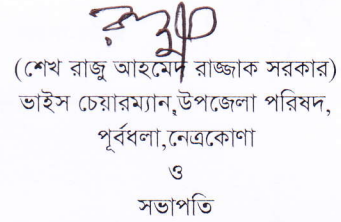 (শেখ রাজু আহমেদ রাজ্জাক সরকার)
ভাইস চেয়ারম্যান,উপজেলা পরিষদ,
পূর্বধলা,নেত্রকোণা
ও
সভাপতি